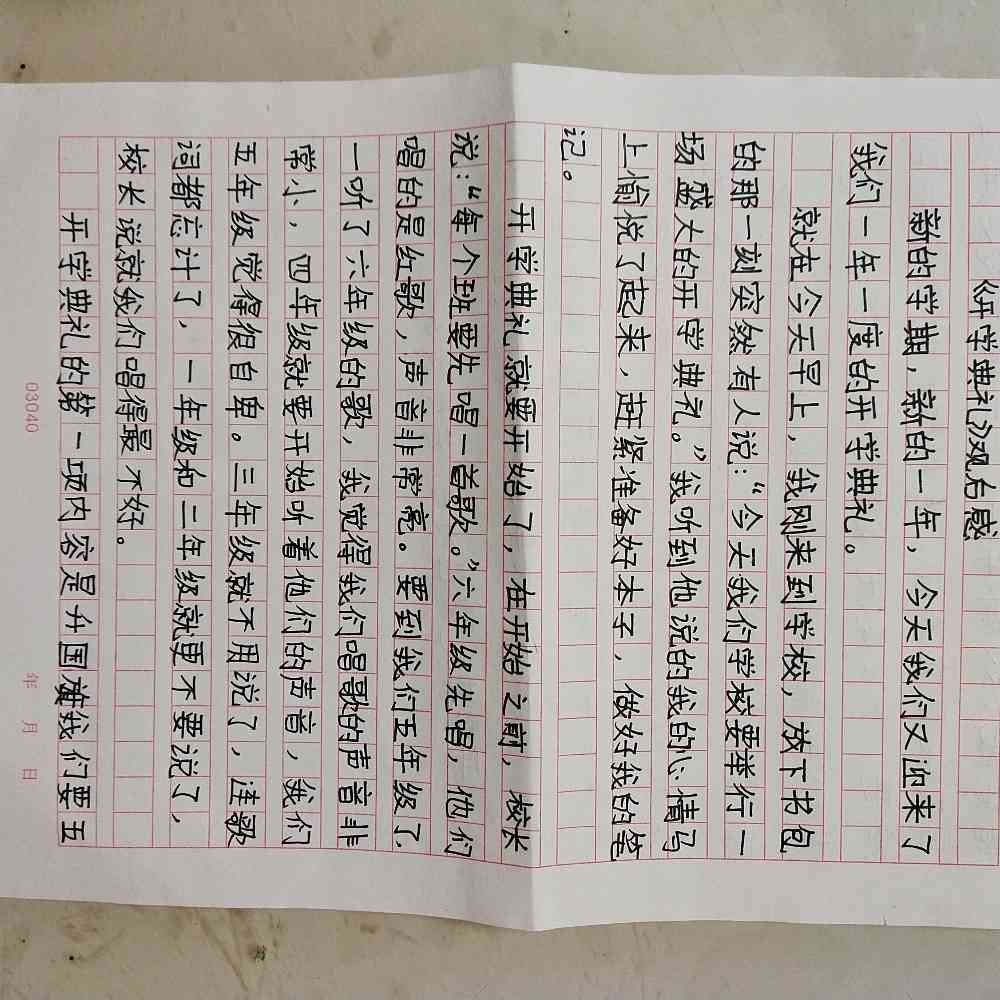 《开学典礼》观后感
新的学期，新的一年，今天我们又迎来了
我们一年一度的开学典礼。
就在今天早上，我刚来到学校，放下书包
的那一刻突然有人说：“今天我们学校要举行一
场盛大的开学典礼。”我听到他说的我的心情马
上愉悦了起来，赶紧准备好本子，做好我的笔
记。
开学典礼就要开始了，在开始之前，校长
说：“每个班要先唱一首歌。”六年级先唱，他们
唱的是红歌，声音非常亮。要到我们五年级了，
一听了六年级的歌，我觉得我们唱歌的声音非
常小，四年级就要开始听着他们的声音，我们
五年级觉得很自卑。三年级就不用说了，连歌
词都忘计了，一年级和二年级就更不要说了，
校长说就我们唱得最不好。
开学典礼的第一项内容是升国旗我们要五
03040
年 月 日